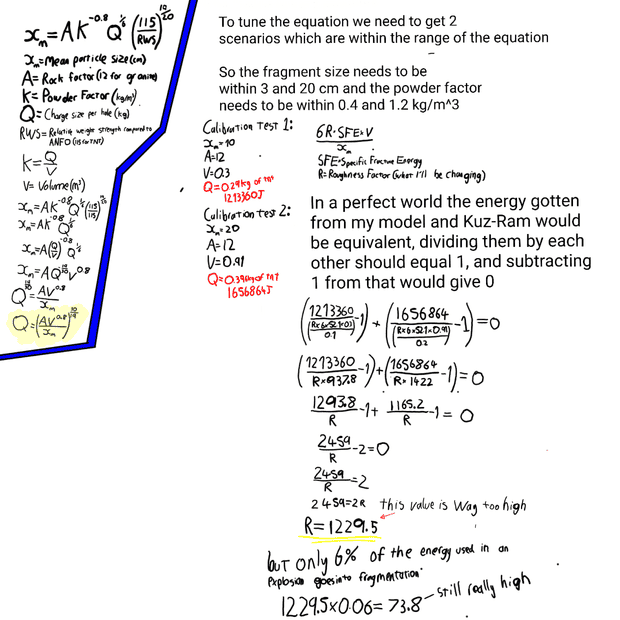 xₘ=AK^-0.8 Q^1/6 (115/RWS)^19/20
xₘ=Mean particle size(cm)
A= Rock factor(12 for granite)
K= Powder Factor (kg/m³)
Q= Charge size per hole (kg)
RWS= Relative weight strength compared to
ANFO (115 for TNT)
K=Q/V
V= Volume(m³)
xₘ=AK^-0.8 Q^1/6 (115/115)^19/20
xₘ=AK^-0.8 Q^1/6
xₘ=A(Q/V)^-0.8 Q^1/6
To tune the equation we need to get 2
scenarios which are within the range of the equation
So the fragment size needs to be
within 3 and 20 cm and the powder factor
needs to be within 0.4 and 1.2 kg/m^3
Calibration Test 1:
xₘ=10
A=12
V=0.3
Q=0.29kg of TNT
1213360J
Calibration test 2:
xₘ=20
A=12
V=0.91
Q=0.396kg of TNT
1656864J
6R·SFE×V/xₘ
SFE=Specific Fracture Energy
R=Roughness Factor (what I'll be changing)
In a perfect world the energy gotten
from my model and Kuz-Ram would
be equivalent, dividing them by each
other should equal 1, and subtracting
1 from that would give 0
(1213360/((R×6×521×0.3)/0.1)-1) + (1656864/((R×6×521×0.91)/0.2)-1)=0
(1213360/(R×937.8)-1)+(1656864/(R×1422)-1)=0
1293.8/R-1+1165.2/R-1=0
2459/R-2=0
2459/R=2
2459=2R this value is Way too high
R=1229.5
but only 6% of the energy used in an
explosion goes into fragmentation.
1229.5×0.06=73.8 – still really high